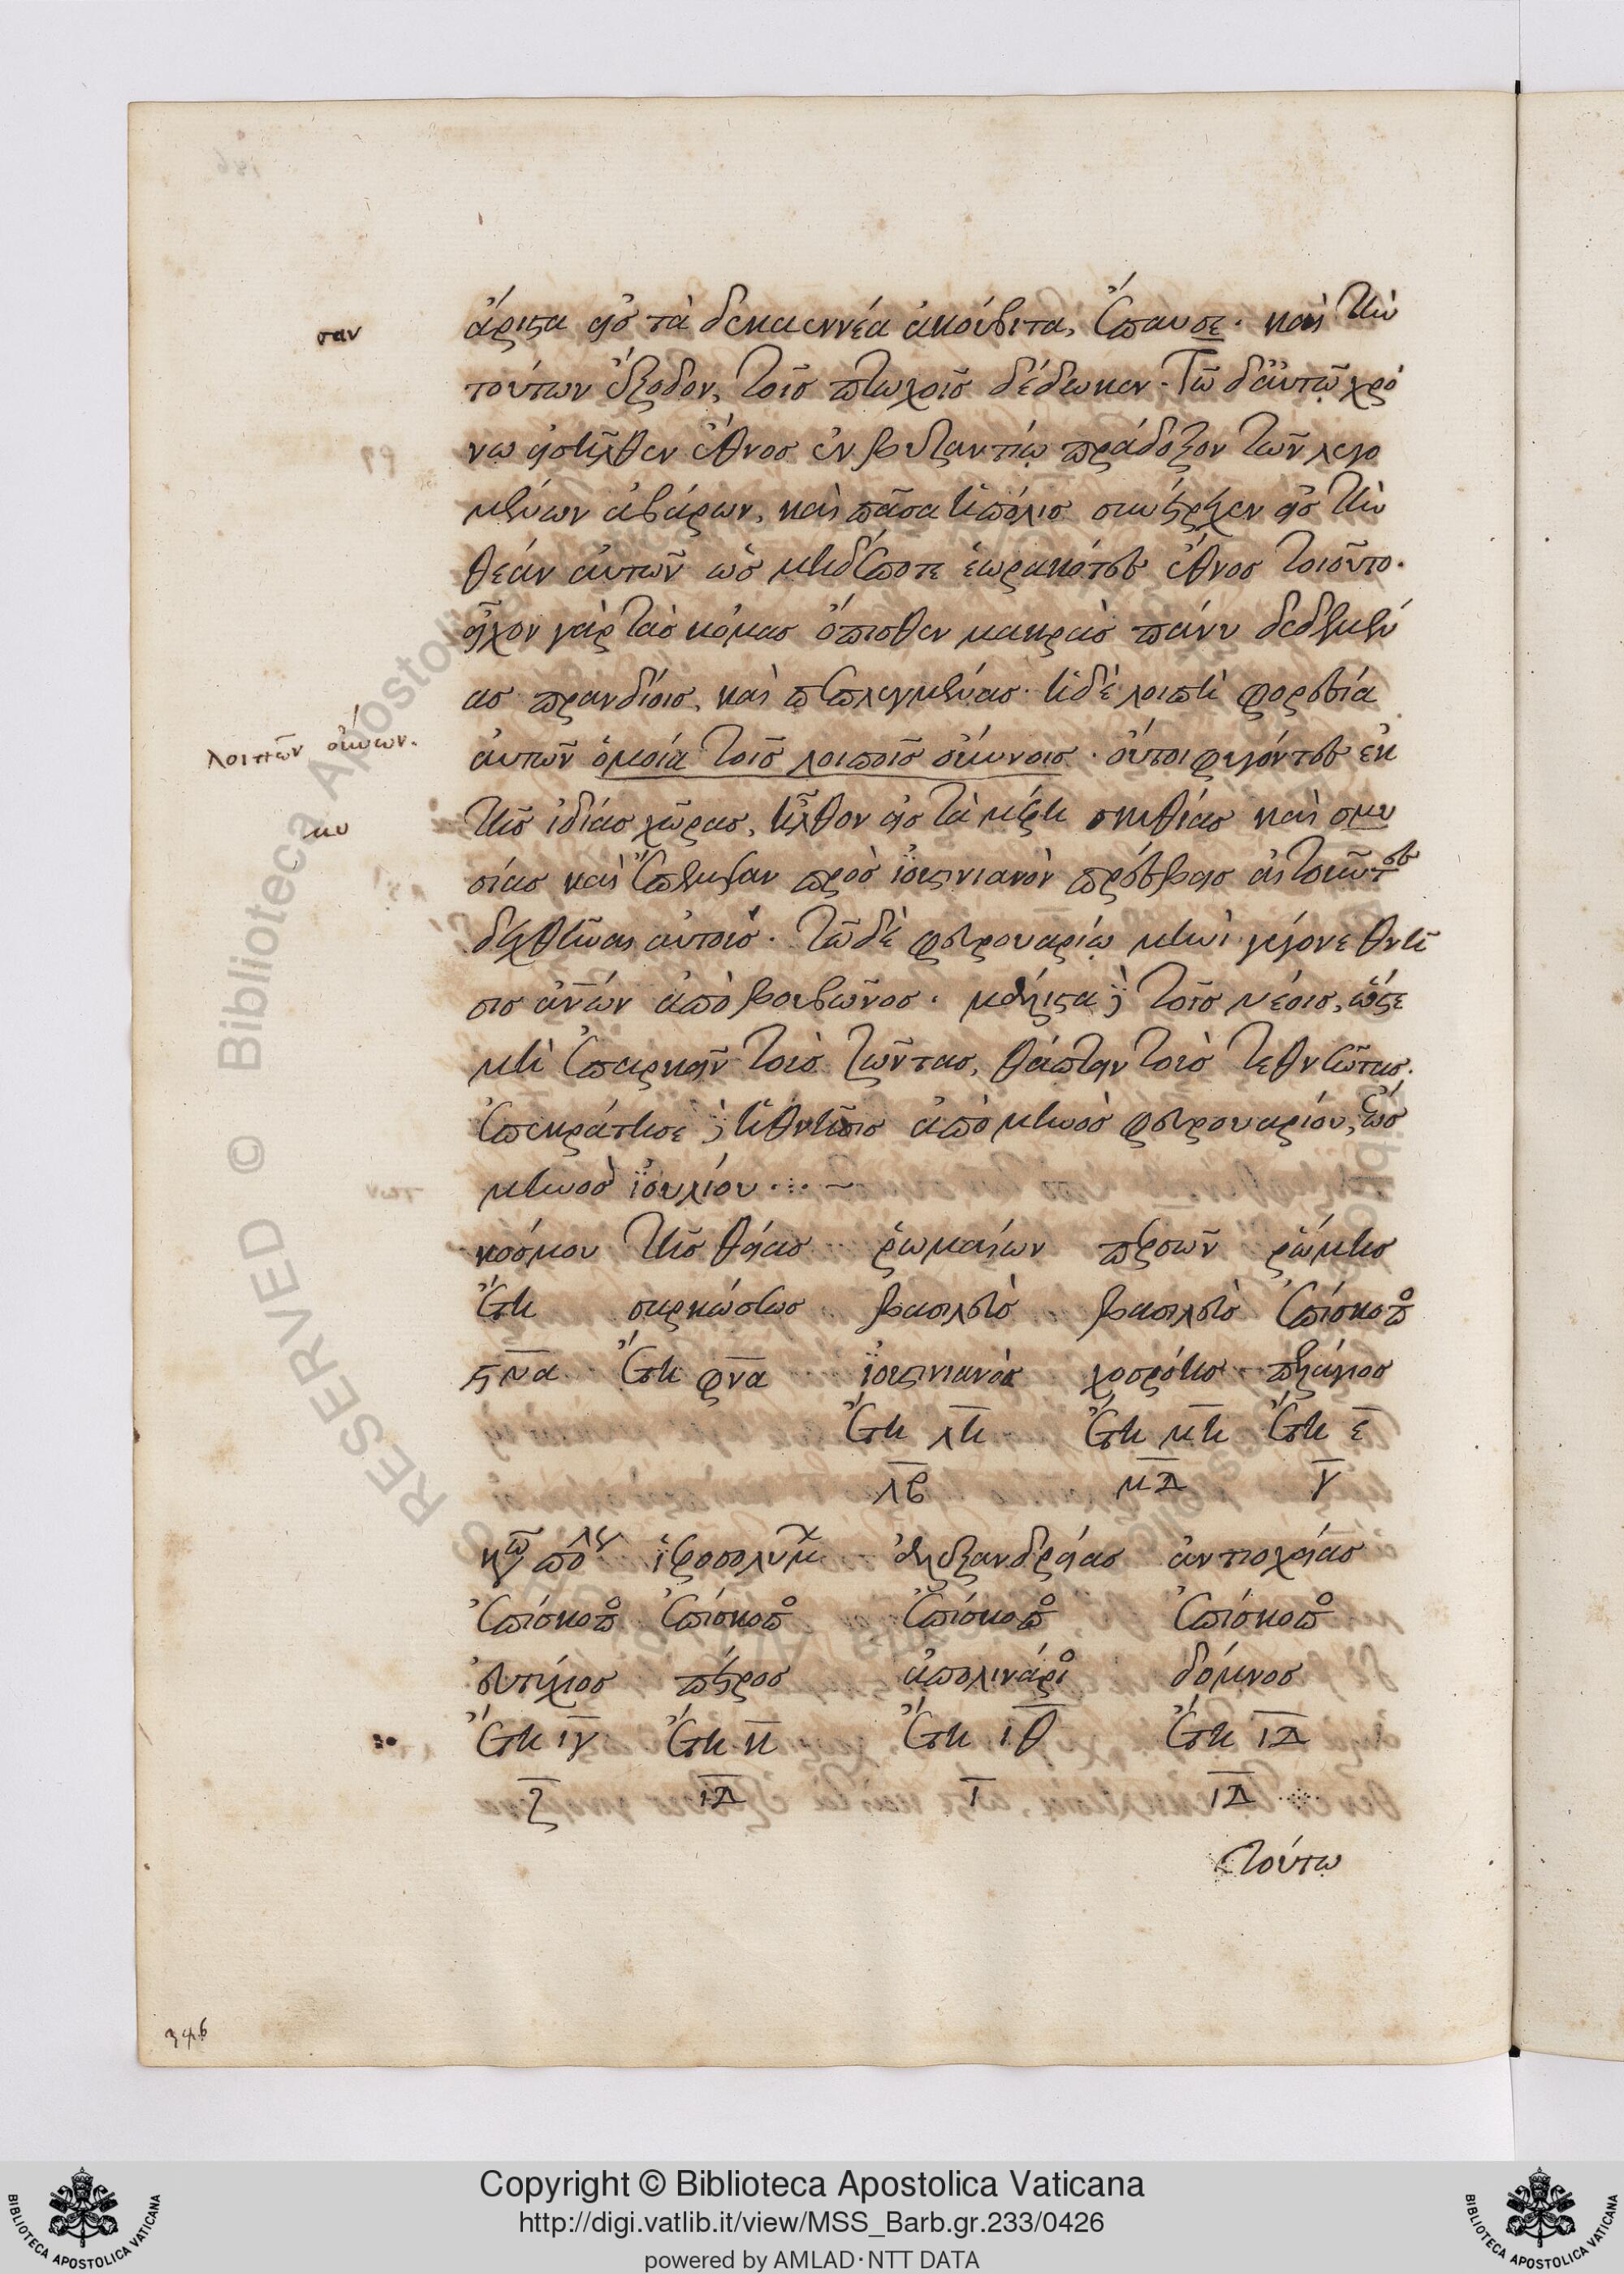 σαν
ἄριστα εἰς τὰ δεκαεννέα ἀκούβιτα, ἔπαυσε. καὶ τὴν
τούτων ἔξοδον, τοῖς πτωχοῖς δέδωκεν. Τῶ δ' αὐτῷ χρό
νω εἰσῆλθεν ἔθνος ἐν βυζαντίῳ παράδοξον τῶν λεγο
μένων ἀβάρων, καὶ πᾶσα ἡ πόλις συνέτρεχεν εἰς τὴν
θεάν αὐτῶν ὡς μηδέποτε ἑωρακότες ἔθνος τοιοῦτο.
εἶχον γὰρ τὰς κόμας ὄπισθεν μακρὰς πάνυ δεδεμέν
ας πρανδίοις, καὶ πεπλεγμένας. ἡ δὲ λοιπὴ φορεσία
λοιπῶν οὕννων.
αὐτῶν ὁμοία τοῖς λοιποῖς οὕννοις. οὗτοι φυγόντες ἐκ
μυ
τῆς ἰδίας χῶρας, ἦλθον εἰς τὰ μέρη σκυθίας καὶ σμυ
σίας καὶ ἔπεμψαν πρὸς ἰουστινιανὸν πρέσβεις αἰτοῦντες
δεχθῆναι αὐτούς. Τῶ δὲ φευρουαρίῳ μηνὶ γέγονε θνῆ
σις ἀν̅ων ἀπὸ βουβῶνος. μάλιστα δὲ τοῖς νέοις, ὥστε
μὴ ἐπαρκεῖν τοὺς ζῶντας, θάπτειν τοὺς τεθνεῶτας.
ἐπεκράτησε δὲ ἡ θνῆσις ἀπὸ μηνὸς φευρουαρίου, ἕως
μηνὸς ἰουλίου
κόσμου τῆς θείας ῥωμαίων περσῶν ῥώμης
ἔτη σαρκώσεως βασιλεὺς βασιλεὺς ἐπίσκοπο
ϛνα ἔτη φνα ἰουστινιανὸς χοσρόης πελάγιος
ἔτη λη ἔτη μη ἔτη ε
λβ μδ γ
κων πόλεως ἱεροσολύμ ἀλεξανδρείας ἀντιοχείας
ἐπίσκοπο ἐπίσκοπο ἐπίσκοπο ἐπίσκοπο
εὐτύχιος πέτρος ἀπολινάριο δόμνος
ἔτη ιγ ἔτη κ ἔτη ιθ ἔτη ιδ
ζ ιδ ι ιδ
τούτω
346
RESERVED © Biblioteca Apostolica
Copyright © Biblioteca Apostolica Vaticana
http://digi.vatlib.it/view/MSS_Barb.gr.233/0426
powered by AMLAD·NTT DATA
BIBLIOTECA APOSTOLICA VATICANA
BIBLIOTECA APOSTOLICA VATICANA